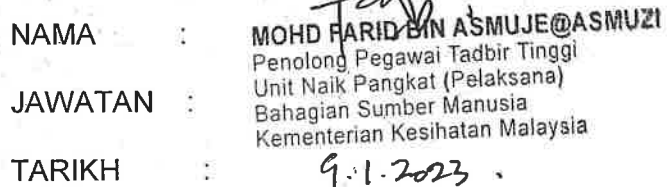 NAMA : MOHD FARID BIN ASMUJE@ASMUZI
Penolong Pegawai Tadbir Tinggi
Unit Naik Pangkat (Pelaksana)
JAWATAN : Bahagian Sumber Manusia
Kementerian Kesihatan Malaysia
TARIKH : 9.1.2023.